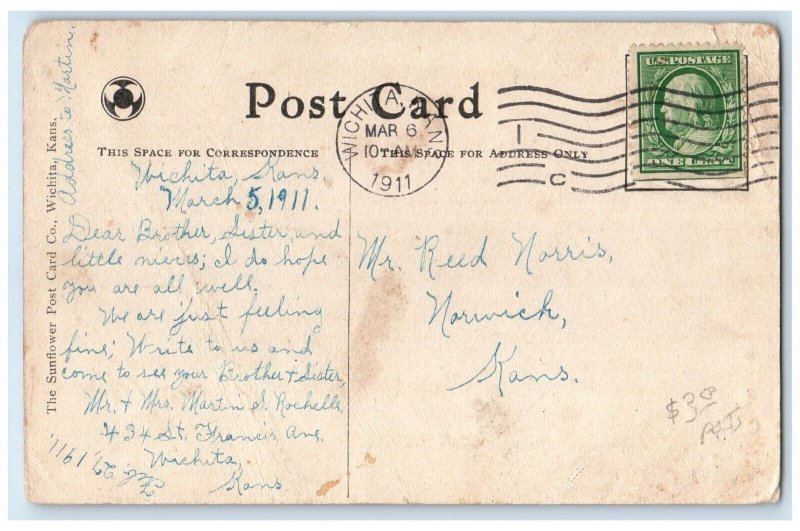 Address to Martin.
The Sunflower Post Card Co., Wichita, Kans.
Post Card
THIS SPACE FOR CORRESPONDENCE
THIS SPACE FOR ADDRESS ONLY
WICHITA, KAN
MAR 6
10 AM
1911
1
C
U.S. POSTAGE
ONE CENT
Wichita, Kans.
March 5, 1911.
Dear Brother, Sister and
little nieces; I do hope
you are all well.
We are just feeling
fine; Write to us and
come to see your Brother + Sister,
Mr. + Mrs. Martin S. Rochelle,
434 St. Francis Ave.
Wichita,
Kans
Feb. 27, 1911.
Mr. Reed Norris,
Norwich,
Kans.
$3